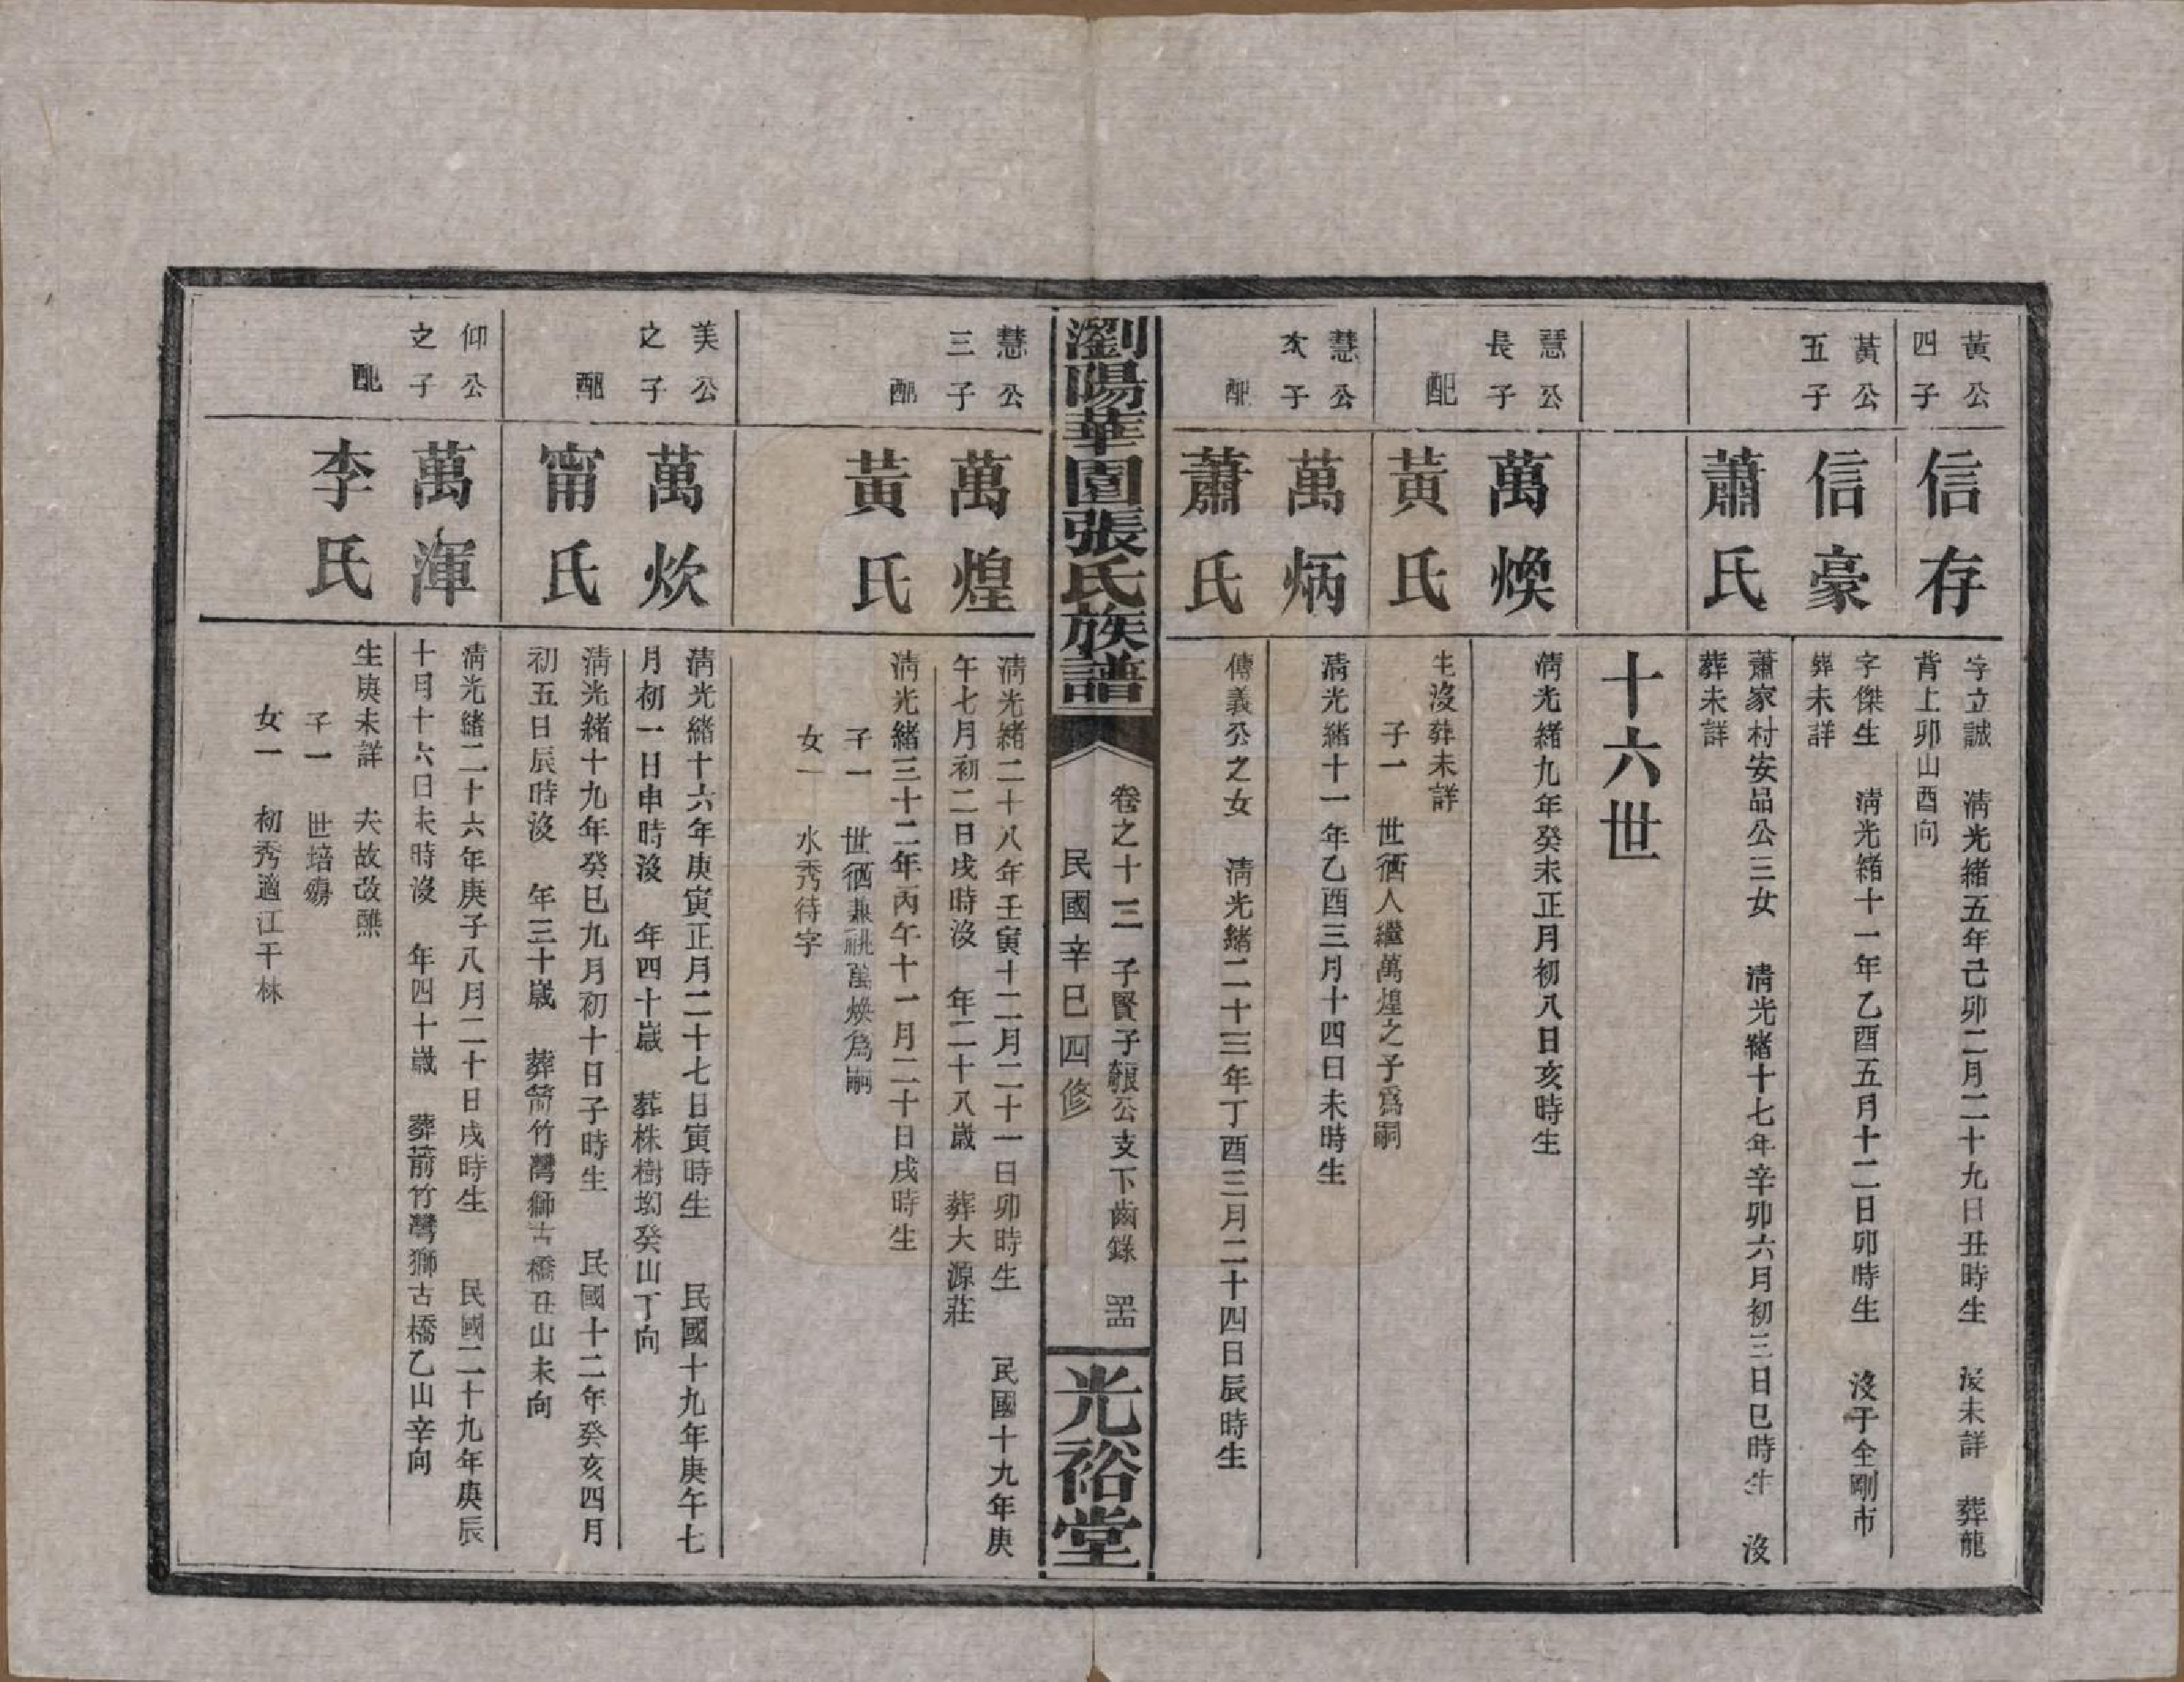 黃公四子
信存
字立誠　清光緒五年己卯二月二十九日丑時生　沒未詳　葬龍
背上卯山酉向
黃公五子
信豪
字傑生　清光緒十一年乙酉五月十二日卯時生　沒于金剛市
葬未詳
蕭氏
蕭家村安品公三女　清光緒十七年辛卯六月初三日巳時生　沒
葬未詳
十六世
慧公長子
萬煥
清光緒九年癸未正月初八日亥時生
配
黃氏
生沒葬未詳
子一　世禋人繼萬煌之子爲嗣
慧公次子
萬炳
清光緒十一年乙酉三月十四日未時生
配
蕭氏
傳義公之女　清光緒二十三年丁酉三月二十四日辰時生
瀏陽華園張氏族譜
卷之十三　子賢子報公支下齒錄　
民國辛巳四修
光裕堂
慧公三子
萬煌
清光緒二十八年壬寅十二月二十一日卯時生　民國十九年庚
午七月初二日戌時沒　年二十八歲　葬大源莊
配
黃氏
清光緒三十二年丙午十一月二十日戌時生
子一　世禋兼祧萬煥爲嗣
女一　水秀待字
美公之子
萬炊
清光緒十六年庚寅正月二十七日寅時生　民國十九年庚午七
月初一日申時沒　年四十歲　葬株樹坳癸山丁向
配
甯氏
清光緒十九年癸巳九月初十日子時生　民國十二年癸亥四月
初五日辰時沒　年三十歲　葬箭竹灣獅古橋丑山未向
仰公之子
萬渾
清光緒二十六年庚子八月二十日戌時生　民國二十九年庚辰
十月十六日未時沒　年四十歲　葬箭竹灣獅古橋乙山辛向
配
李氏
生庚未詳　夫故改醮
子一　世培殤
女一　初秀適江干林